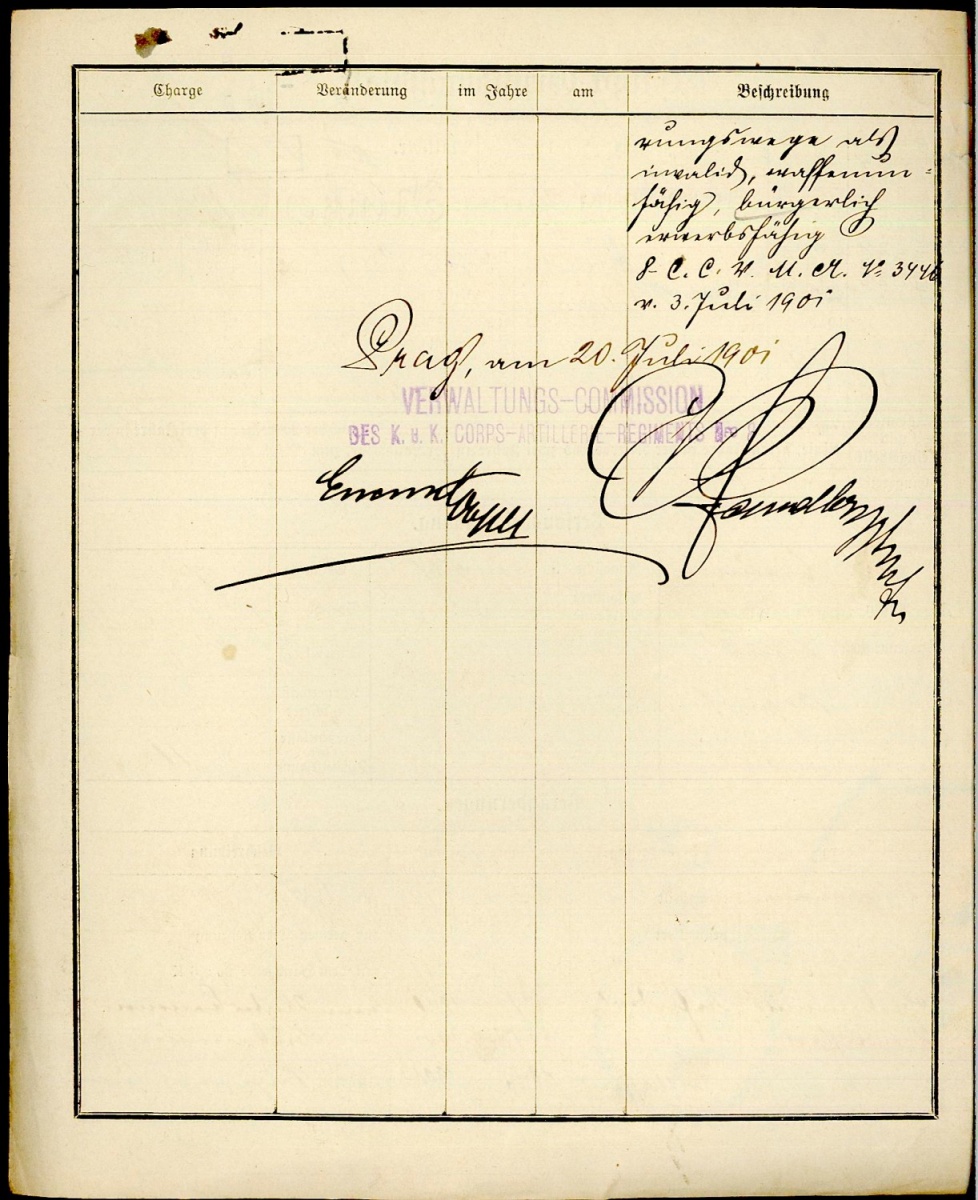 Charge Veränderung im Jahre am Beschreibung
rungswege als
invalid, waffenun-
fähig, bürgerlich
erwerbsfähig
8. C. C. V. M. A. No 3446
v. 3. Juli 1901
Prag, am 20. Juli 1901
VERWALTUNGS-COMMISSION
DES K. u. K. CORPS-ARTILLERIE-REGIMENTS Nro 8